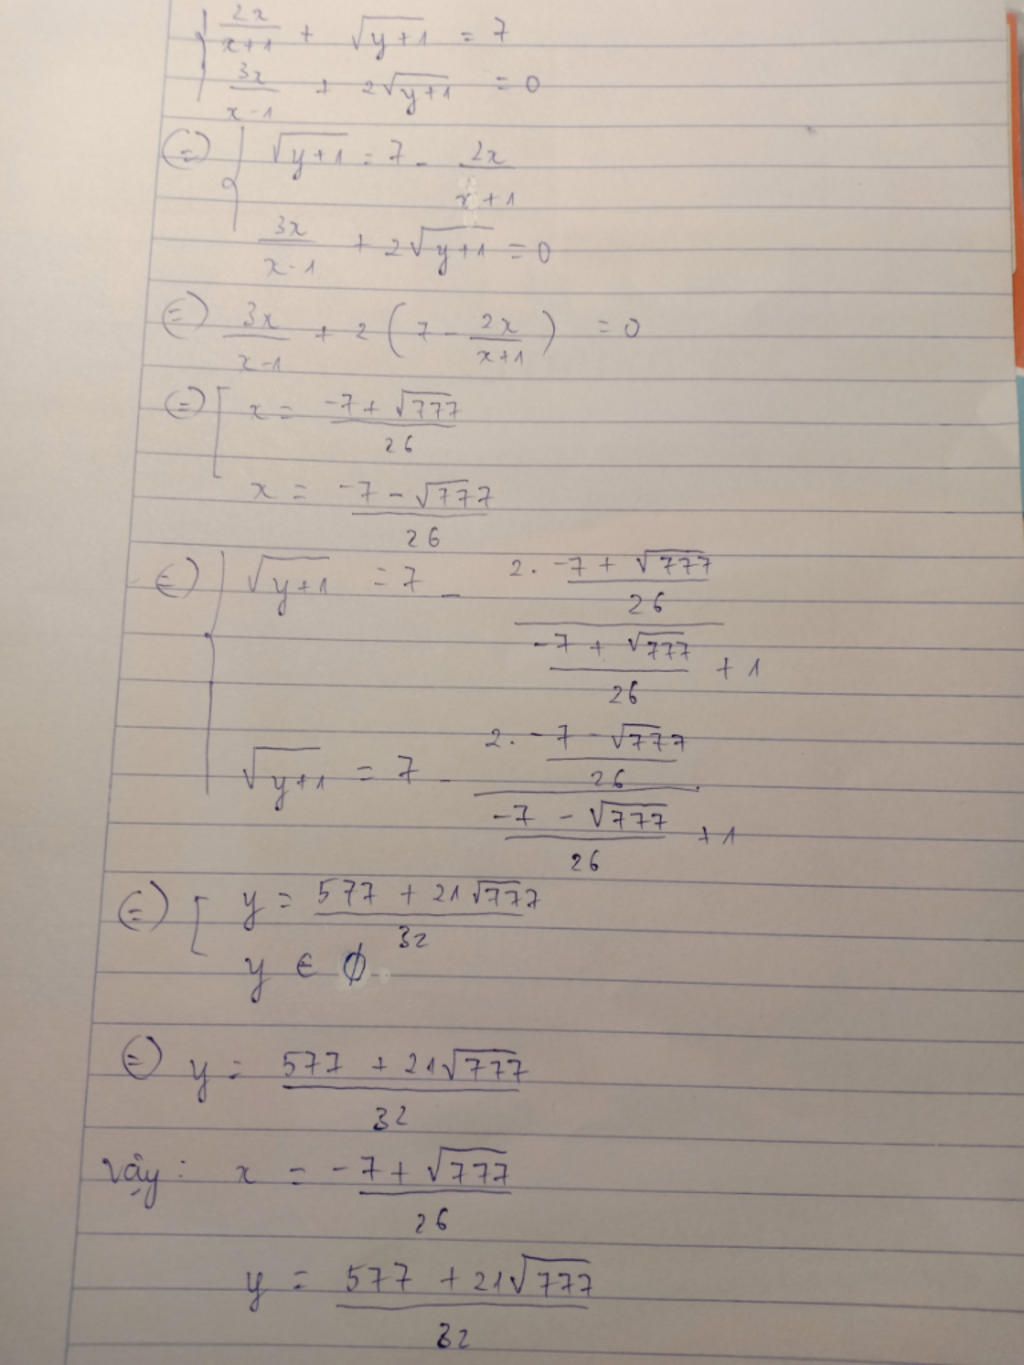 2x/(x+1) + √(y+1) = 7
3x/(x-1) + 2√(y+1) = 0
(=) √(y+1) = 7 - 2x/(x+1)
3x/(x-1) + 2√(y+1) = 0
(=) 3x/(x-1) + 2(7 - 2x/(x+1)) = 0
(=) x = (-7 + √777)/26
x = (-7 - √777)/26
(=) √(y+1) = 7 - (2 · (-7 + √777)/26)/((-7 + √777)/26 + 1)
√(y+1) = 7 - (2 · (-7 - √777)/26)/((-7 - √777)/26 + 1)
(=) y = (577 + 21√777)/32
y ∈ ∅
(=) y = (577 + 21√777)/32
vậy: x = (-7 + √777)/26
y = (577 + 21√777)/32